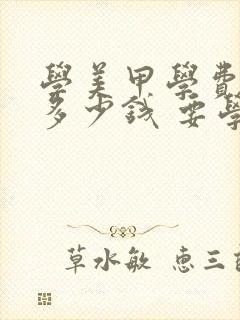 學美甲學費
多少錢 要學
草水敏 惠三